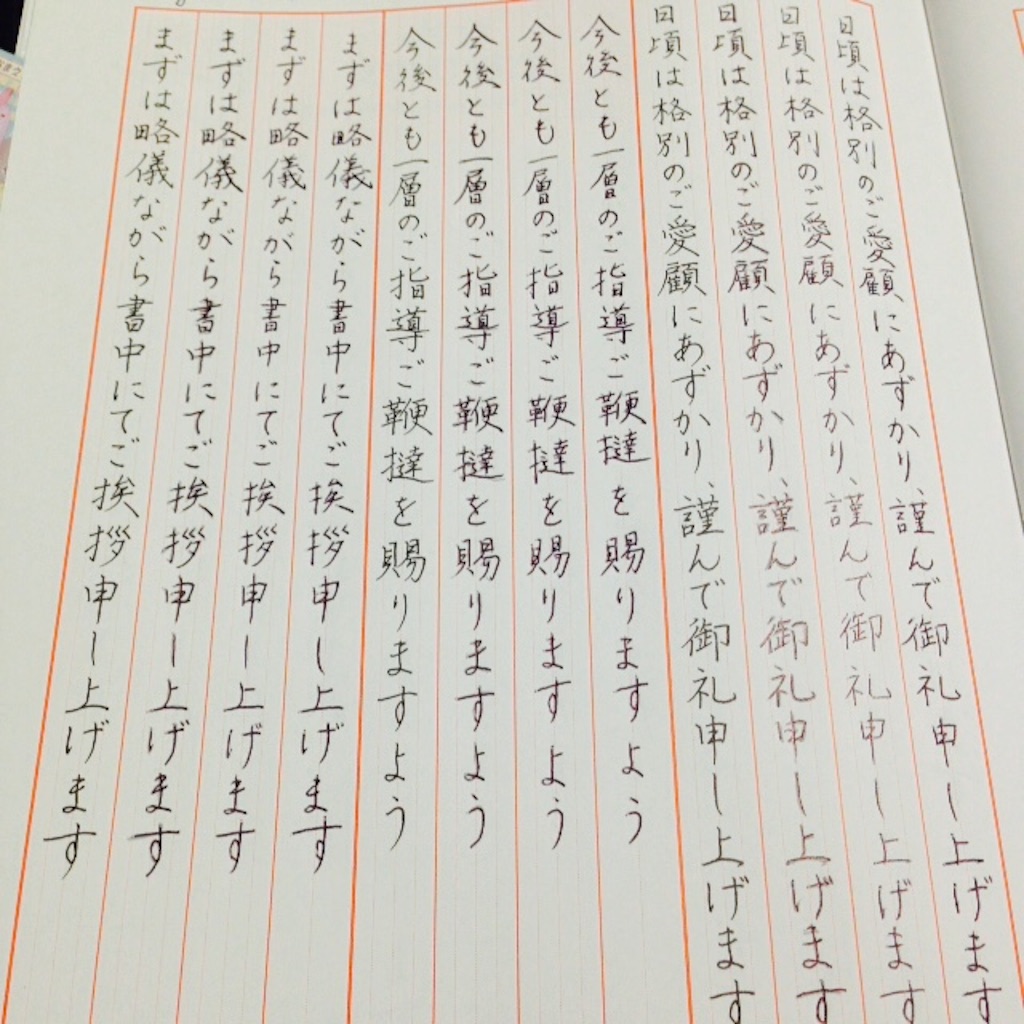 日頃は格別のご愛顧にあずかり、謹んで御礼申し上げます
日頃は格別のご愛顧にあずかり、謹んで御礼申し上げます
日頃は格別のご愛顧にあずかり、謹んで御礼申し上げます
日頃は格別のご愛顧にあずかり、謹んで御礼申し上げます
今後とも一層のご指導ご鞭撻を賜りますよう
今後とも一層のご指導ご鞭撻を賜りますよう
今後とも一層のご指導ご鞭撻を賜りますよう
今後とも一層のご指導ご鞭撻を賜りますよう
まずは略儀ながら書中にてご挨拶申し上げます
まずは略儀ながら書中にてご挨拶申し上げます
まずは略儀ながら書中にてご挨拶申し上げます
まずは略儀ながら書中にてご挨拶申し上げます